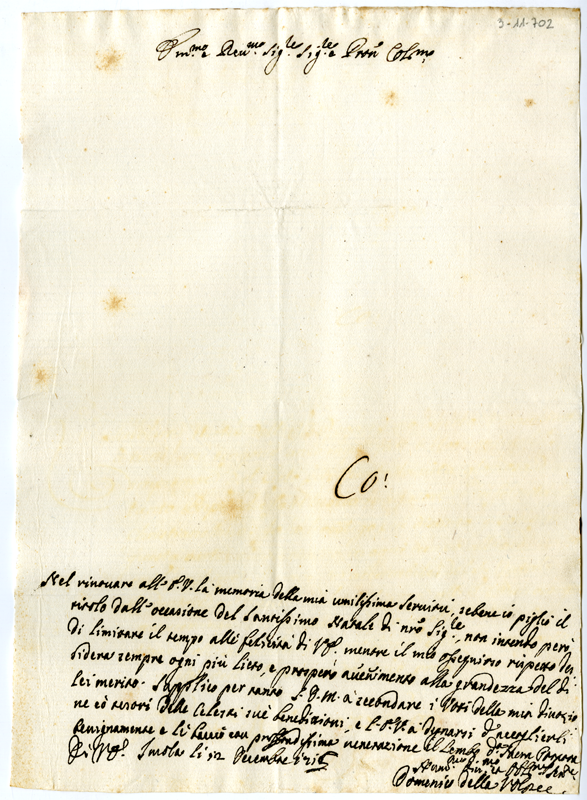 9·11·702
Em:mo e Reu:mo Sig:re Sig:re Pron Col:mo
Co:
Nel rinouare all' V. la memoria della mia umilissima seruitù, sebene io piglio il
titolo dall' occasione del Santissimo Natale di nro Sig:re, non intendo però
di limitare il tempo alle felicità di mentre il mio ossequioso rispetto de
sidera sempre ogni più lieto, e prospero auuenimento alla grandezza del di
lei merito. Supplico per tanto S. D. M. à secondare i Voti della mia diuozio
ne cò tesori delle Celesti sue benedizioni, e V. à degnarsi d'accoglierli
benignamente e le bacio con profondissima uenerazione il Lembo della Sacra Porpora
Di Imola li 12 Decembre
Domenico della Volpe